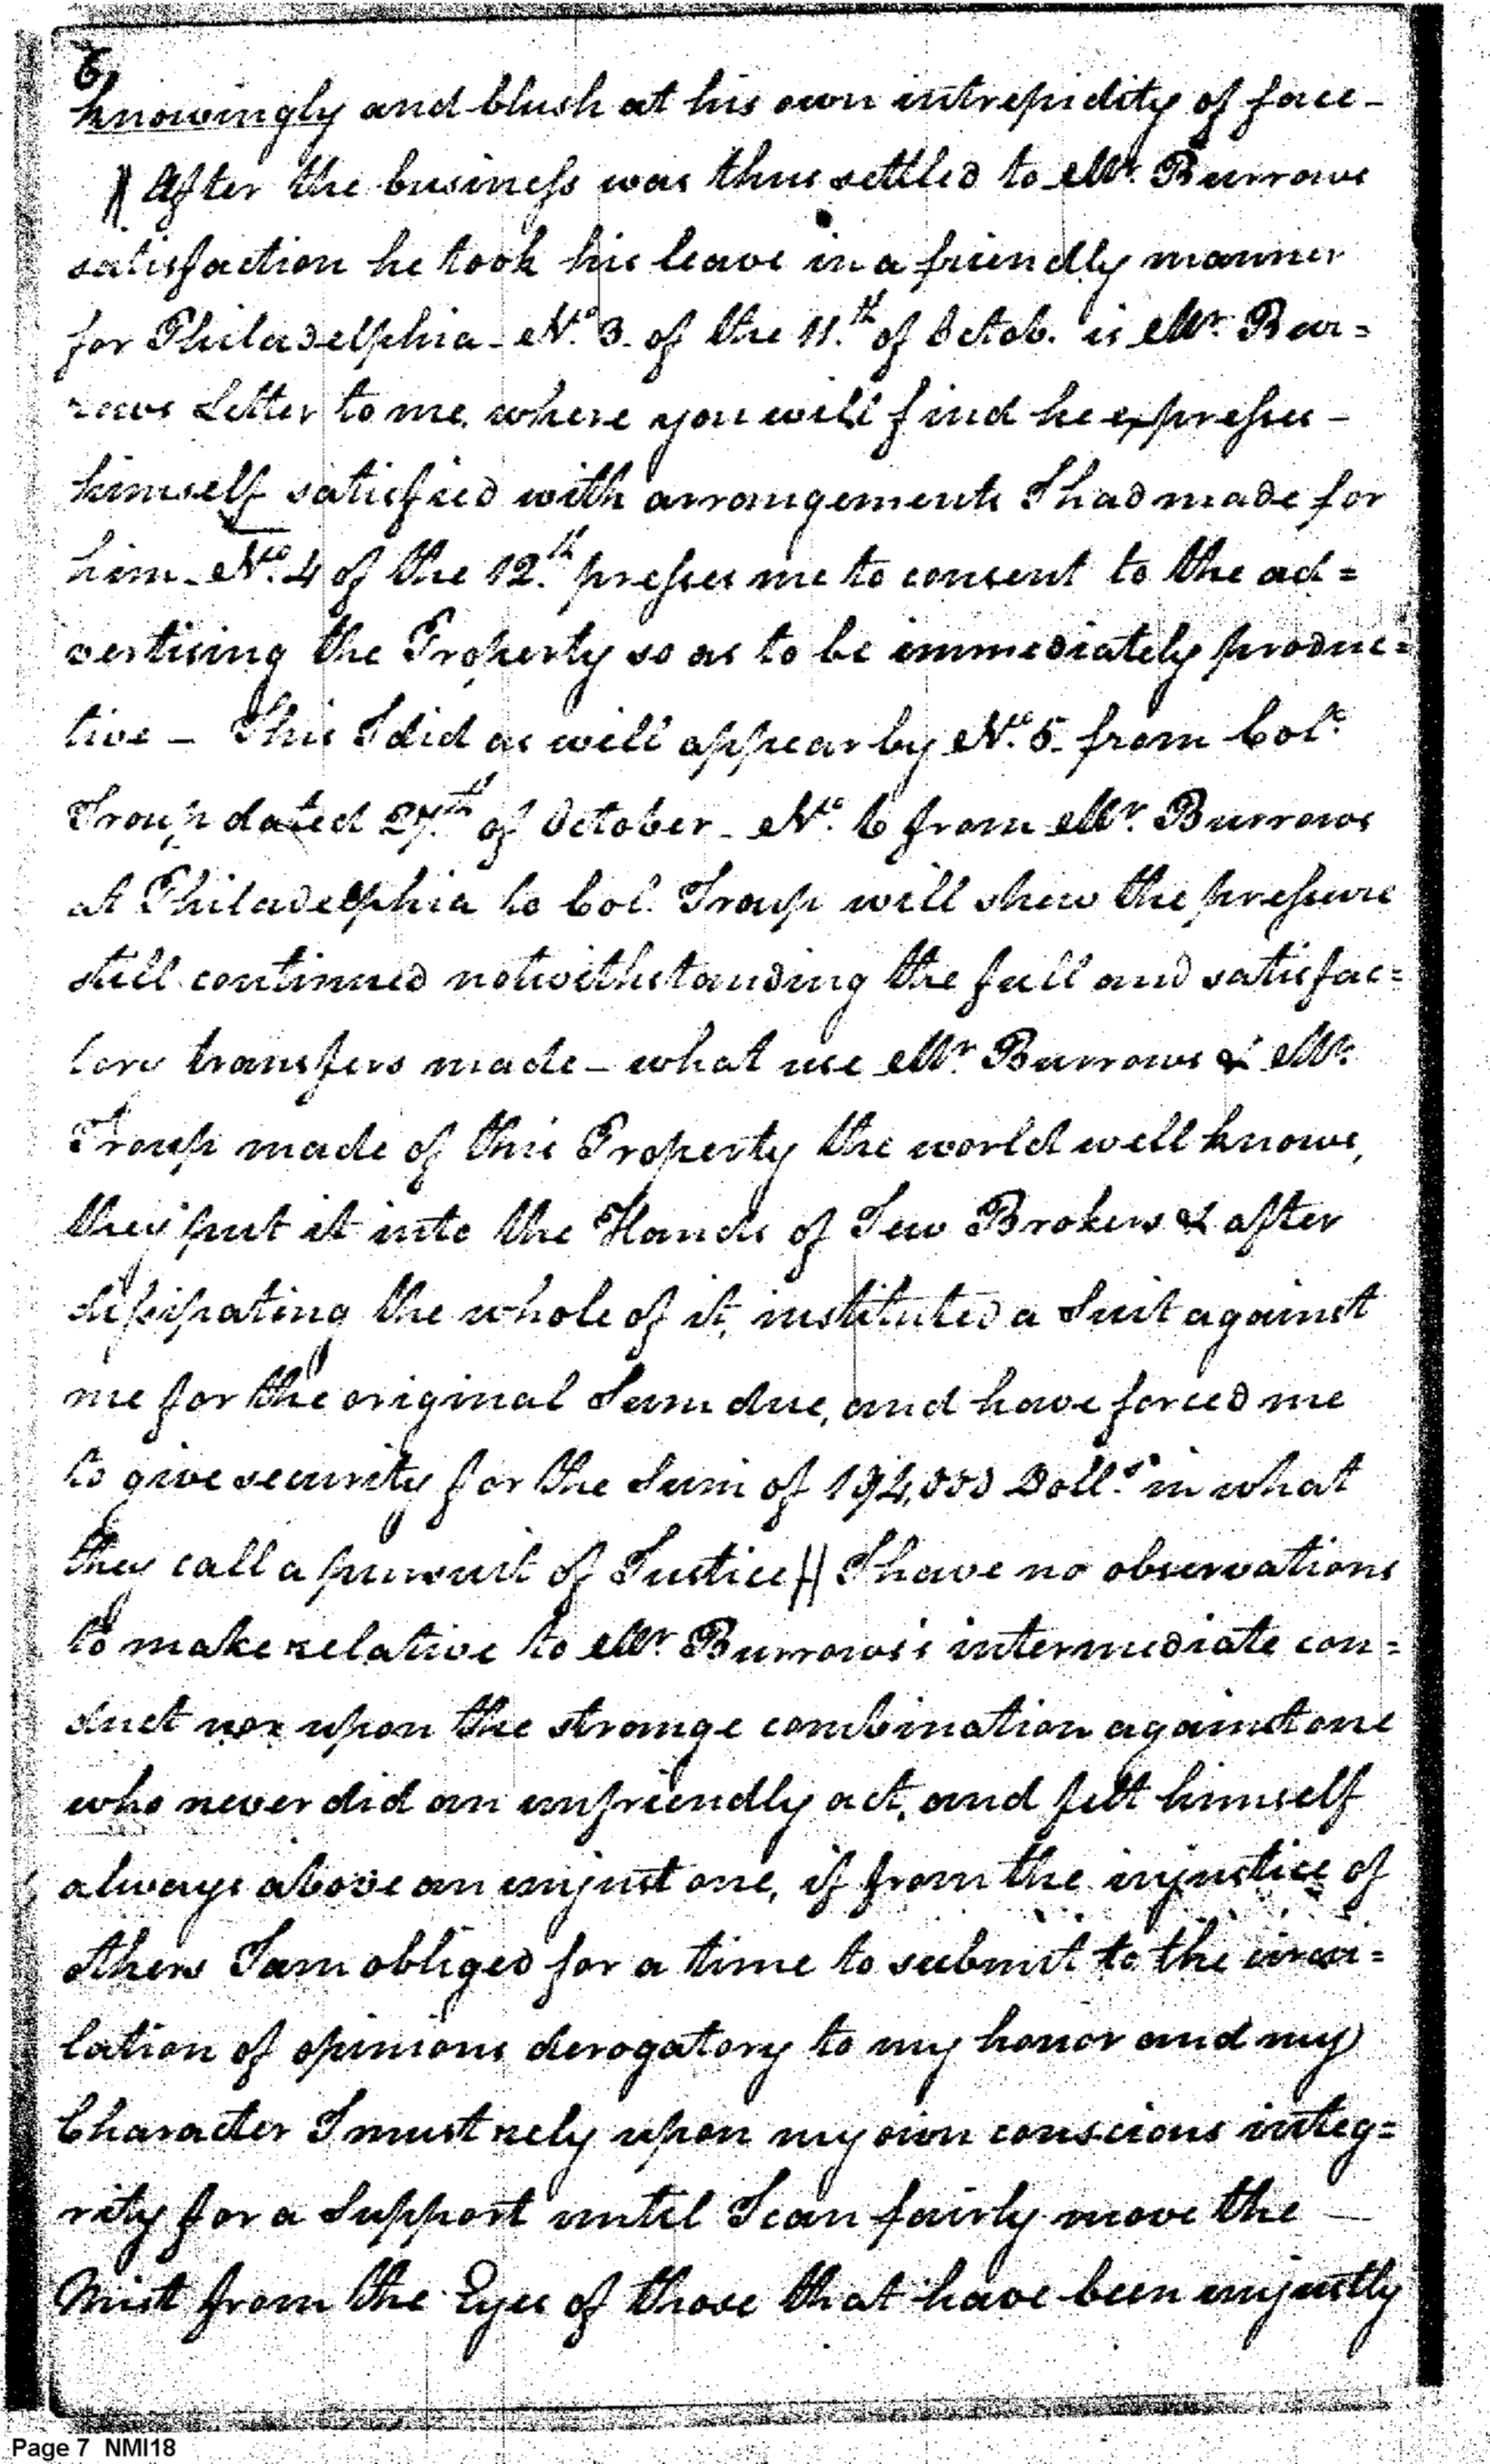 6
knowingly and blush at his own intrepidity of face -
After the business was thus settled to Mr. Burrows
satisfaction he took his leave in a friendly manner
for Philadelphia - No. 3. of the 11.th of Octob. is Mr. Bur=
rows Letter to me, where you will find he expresses -
himself satisfied with arrangements I had made for
him - No. 4 of the 12.th presses me to consent to the ad=
vertising the Property so as to be immediately produc=
tive - This I did as will appear by No. 5. from Col.
Troup dated 27.th of October - No. 6 from Mr. Burrows
at Philadelphia to Col. Troup will shew the pressure
still continued notwithstanding the full and satisfac=
tory transfers made - what use Mr. Burrows & Mr.
Troup made of this Property the world well knows,
they put it into the Hands of Jew Brokers & after
dissipating the whole of it, instituted a Suit against
me for the original Sum due, and have forced me
to give security for the Sum of Doll.s in what
they call a pursuit of Justice // I have no observations
to make relative to Mr. Burrows's intermediate con=
duct nor upon the strange combination against one
who never did an unfriendly act, and felt himself
always above an unjust one, if from the injustice of
others I am obliged for a time to submit to the circu=
lation of opinions derogatory to my honor and my
Character I must rely upon my own conscious integ=
rity for a Support until I can fairly move the
Mist from the Eyes of those that have been unjustly
Page 7 NMI18